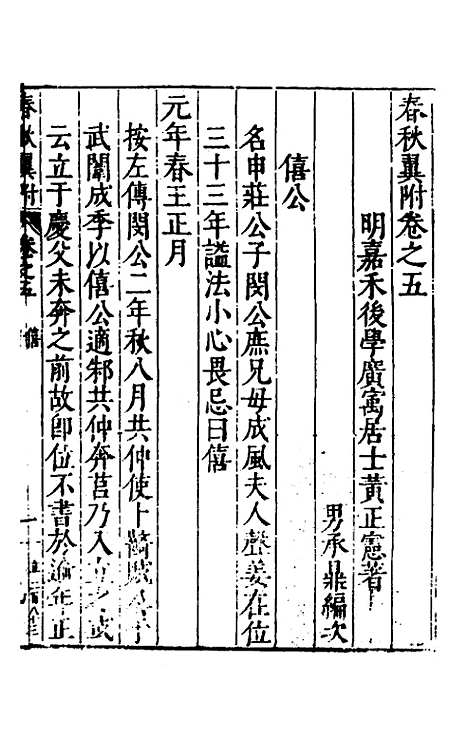 春秋翼附卷之五
明嘉禾後學廣寓居士黃正憲著
男承鼎編次
僖公
名申莊公子閔公庶兄母成風夫人聲姜在位
三十三年謚法小心畏忌曰僖
元年春王正月
按左傳閔公二年秋八月共仲使卜齮賊公于
武闈成季以僖公適邾共仲奔莒乃入立之或
云立于慶父未奔之前故卽位不書於逾年正
春秋翼附 卷之五 僖 一